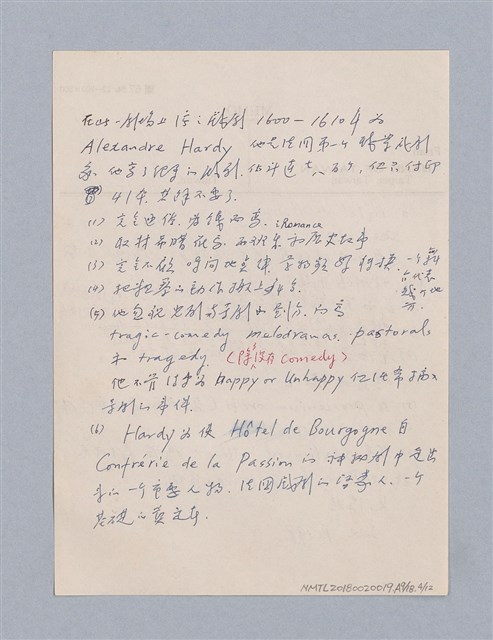 在此一劇場上演之戲劇 1600—1610年為
Alexandre Hardy 他是法國第一个職業戲劇
家 他寫了很多的戲劇 估計達七八百个, 但只付印
41本, 其餘不要了.
(1) 完全迎俗. 為錢而寫. Romance
(2) 取材希臘羅馬. 西班牙和历史故事
(3) 完全不依 時間地點律. 景物頗好轉換. 一个
代表
地
方.
(4) 把粗暴的動作搬上舞台.
(5) 他包括悲劇与喜劇的劃分. 而寫
tragic-comedy melodramas, pastorals
和 tragedy. (除沒有 comedy)
他不管 Happy or Unhappy
喜劇的事件.
(6) Hardy 為使 Hôtel de Bourgogne 自
Confrérie de la Passion 的神秘劇中走出
来的一个重要人物. 法國戲劇的 人. 一个
基礎的奠定者.
NMTL20180020019.A9/18.4/12